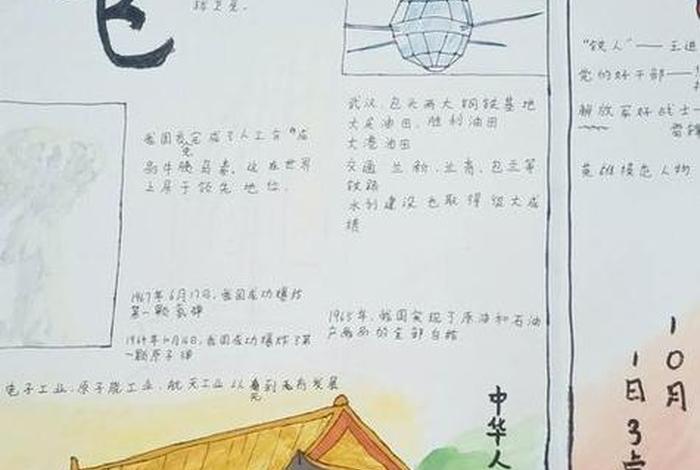 我国首先完成了人工合成
牛胰岛素，这在世界
上居于领先地位。
武汉、包头两大钢铁基地
大庆油田、胜利油田
大港油田
交通 兰新、兰青、包兰等
铁路
水利建设也取得很大成
绩
1967年6月17日，我国成功爆炸
第一颗氢弹
1964年10月16日，我国成功爆炸了第
一颗原子弹
1965年，我国实现了原油和石油
产品的全部自给
电子工业、原子能工业、航天工业从无到有发展
中华人
"铁人"——王进
党的好干部——
解放军好战士
雷锋
英雄模范人物
10月
1日3点